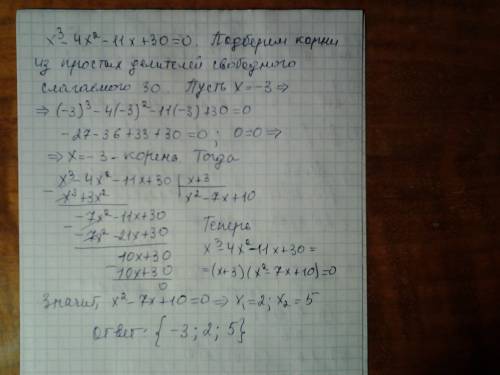 x³-4x²-11x+30=0. Подберём корни
из простых делителей свободного
слагаемого 30. Пусть x=-3 ⇒
⇒ (-3)³-4(-3)²-11(-3)+30=0
-27-36+33+30=0; 0=0 ⇒
⇒ x=-3 - корень. Тогда
x³-4x²-11x+30 | x+3
x³+3x² | x²-7x+10
-7x²-11x+30
-7x²-21x+30
10x+30
10x+30
0
Теперь
x³-4x²-11x+30=
=(x+3)(x²-7x+10)=0
Значит, x²-7x+10=0 ⇒ x₁=2; x₂=5
Ответ: {-3; 2; 5}